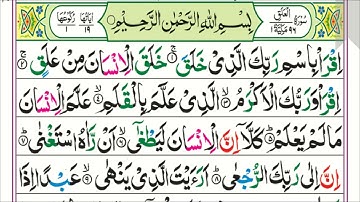 سُوْرَةُ الْعَلَقِ ٩٦ بِسْمِ اللّٰهِ الرَّحْمٰنِ الرَّحِيْمِ اٰيَاتُهَا ١٩ رُكُوْعُهَا ١
اِقْرَاْ بِاسْمِ رَبِّكَ الَّذِىْ خَلَقَ ۚ‏ ١ خَلَقَ الْاِنْسَانَ مِنْ عَلَقٍ ۚ‏ ٢
اِقْرَاْ وَرَبُّكَ الْاَكْرَمُ ۙ‏ ٣ الَّذِىْ عَلَّمَ بِالْقَلَمِ ۙ‏ ٤ عَلَّمَ الْاِنْسَانَ
مَا لَمْ يَعْلَمْ ؕ‏ ٥ كَلَّاۤ اِنَّ الْاِنْسَانَ لَيَطْغٰٓى ۙ‏ ٦ اَنْ رَّاٰهُ اسْتَغْنٰى ؕ‏ ٧
اِنَّ اِلٰى رَبِّكَ الرُّجْعٰى ؕ‏ ٨ اَرَءَيْتَ الَّذِىْ يَنْهٰى ۙ‏ ٩ عَبْدًا اِذَا